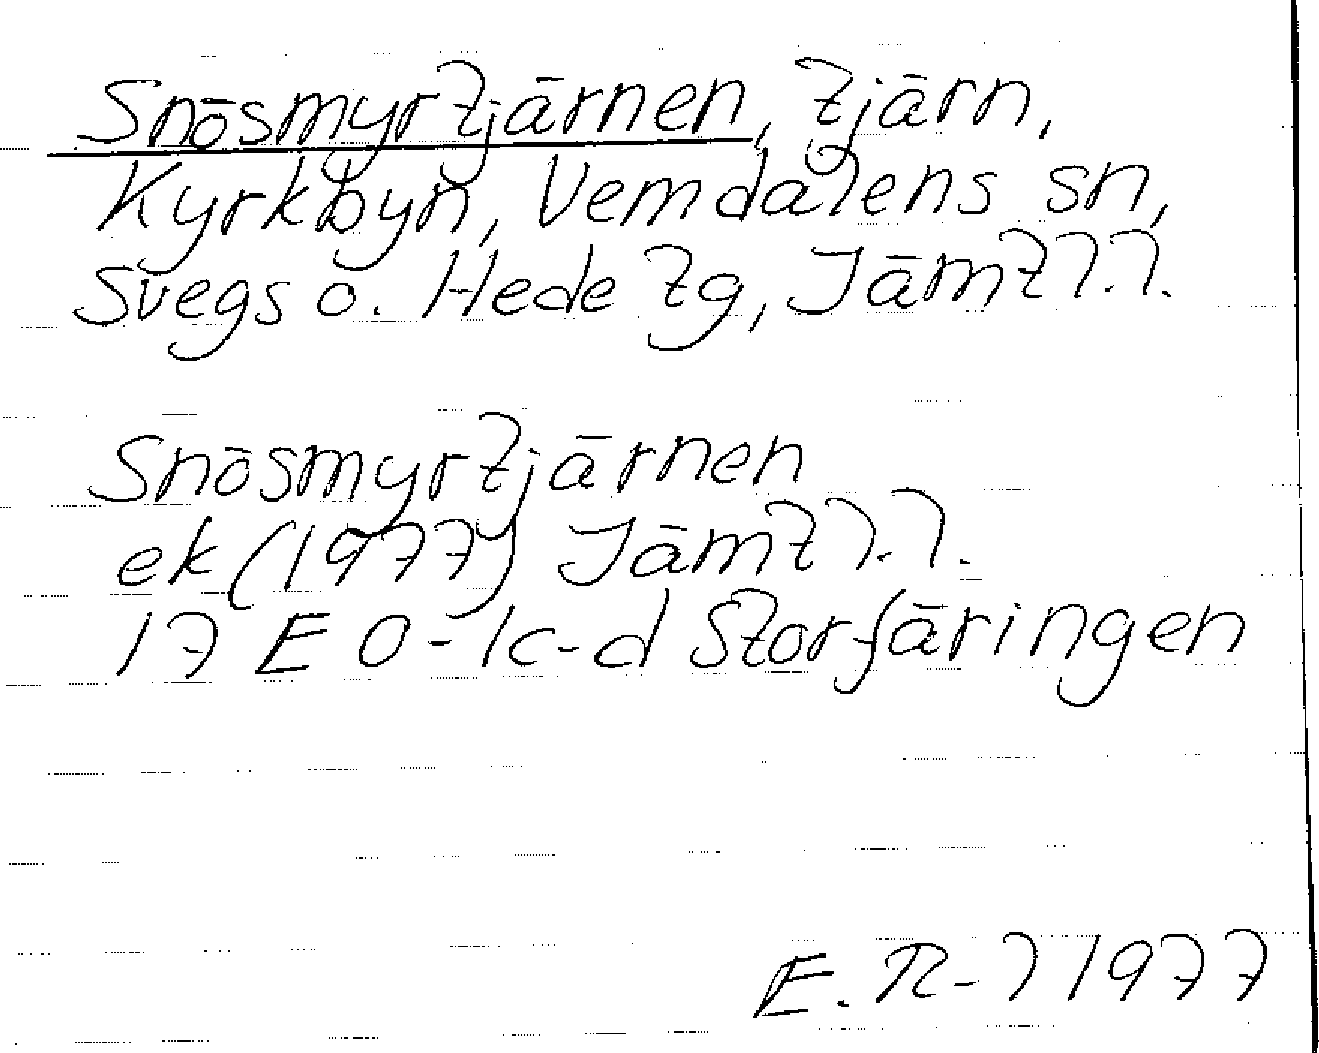 Snösmyrtjärnen, tjärn,
Kyrkbyn, Vemdalens sn,
Svegs o. Hede tg, Jämtl.l.
Snösmyrtjärnen
ek (1977) Jämtl.l.
17 E 0-1c-d Storfäringen
E. R-l 1977